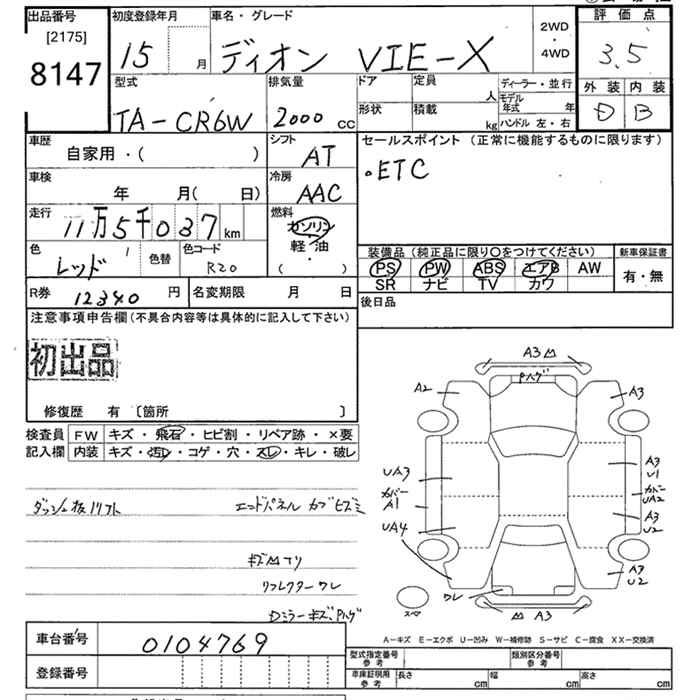 出品番号 初度登録年月 車名・グレード 2WD・4WD 評価点
[2175]
8147 15 月 ディオン VIE-X 3.5
型式 排気量 ドア 定員 人 ディーラー・並行 外装 内装
TA-CR6W 2000 CC 形状 積載 kg モデル年式 年 D B
ハンドル 左・右
車歴 シフト セールスポイント (正常に機能するものに限ります)
自家用・( ) AT .ETC
車検 冷房
年 月( 日) AAC
走行 燃料
11万5千037 km ガソリン
軽油
・
( )
色 色替 色コード
レッド R20
装備品 (純正品に限り○をつけてください) 新車保証書
PS PW ABS エアB AW 有・無
SR ナビ TV カワ
R券 12340 円 名変期限 月 日 後日品
注意事項申告欄 (不具合内容等は具体的に記入して下さい)
初出品
修復歴 有 〔箇所 〕
検査員 FW キズ・飛石・ヒビ割・リペア跡・×要
記入欄 内装 キズ・汚レ・コゲ・穴・スレ・キレ・破レ
ダッシュ板リフト エンドパネル カブヒズミ
リフレクター ワレ
Dミラーキズ、Pハゲ
A3
Pハゲ
A2 A3
UA3 A3
U1
カバー カバー
A1 UA2
UA4 A3
U2
A3
U2
ワレ
スペア A3
A-キズ E-エクボ U-凹み W-補修跡 S-サビ C-腐食 XX-交換済
車台番号 0104769
登録番号
型式指定番号 参考 類別区分番号 参考
車庫証明用 参考 長さ cm 幅 cm 高さ cm